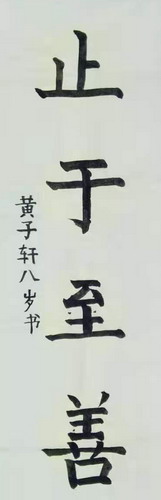 止于至善
黄子轩八岁书